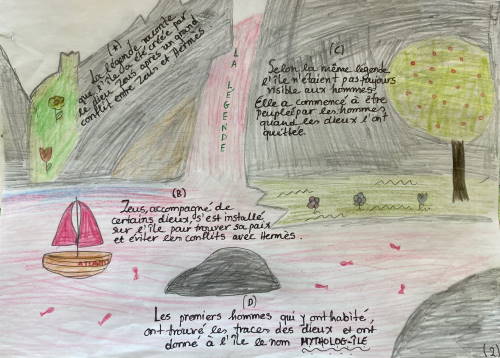 (A)
La légende raconte
que l'île a été créée par
le dieu Zeus après un grand
conflit entre Zeus et Hermès
LA LEGENDE
(C)
Selon la même légende
l'île n'étaient pas toujours
visible aux hommes.
Elle a commencé à être
peuplée par les hommes,
quand les dieux l'ont
quittée.
(B)
Zeus, accompagné de
certains dieux, s'est installé
sur l'île pour trouver sa paix
et éviter les conflits avec Hermès.
(D)
Les premiers hommes qui y ont habité,
ont trouvé les traces des dieux et ont
donné à l'île le nom MYTHOLOG-ÎLE
(2)